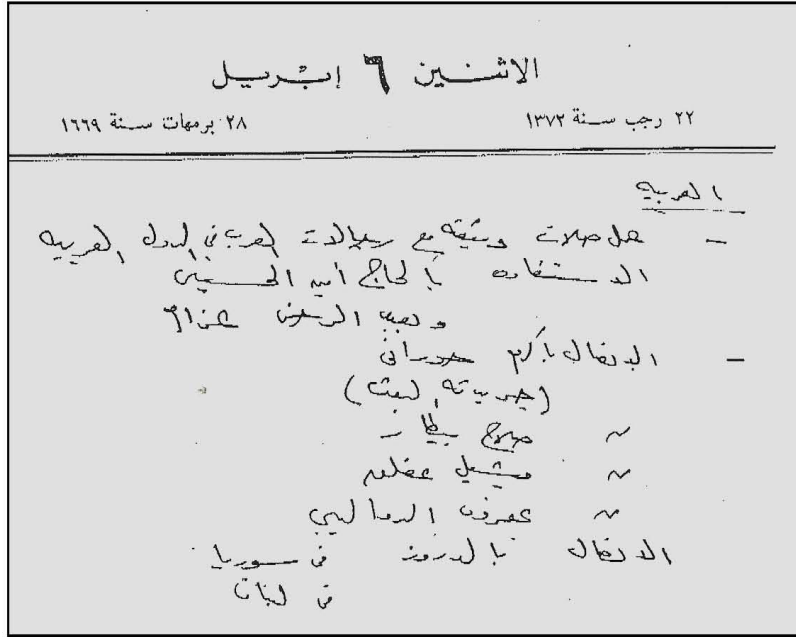 الاثنين ٦ إبريل
٢٢ رجب سنة ١٣٧٢
٢٨ برمهات سنة ١٦٦٩
العربيه
- عمل صلات وثيقه مع رجالات العرب فى الدول العربيه
الاستفاده بالحاج أمين الحسينى
وعبد الرحمن عزام
- الاتصال بأكرم حورانى
(جريدته البعث)
〃 صلاح بيطار
〃 ميشيل عفلق
〃
الاتصال بالدروز فى سوريا
فى لبنان